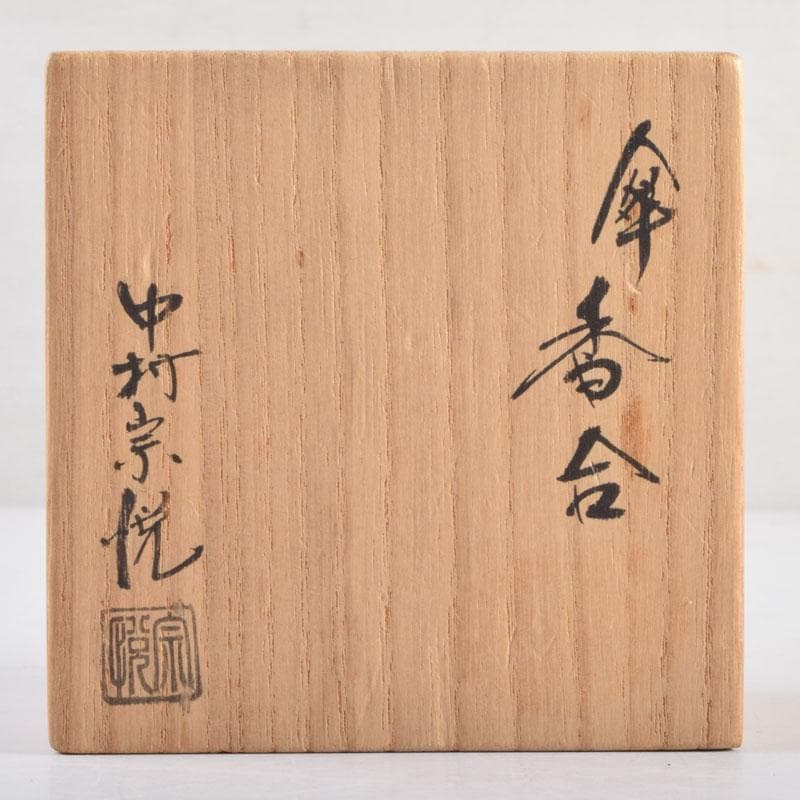 傘香合
中村宗悦
宗悦